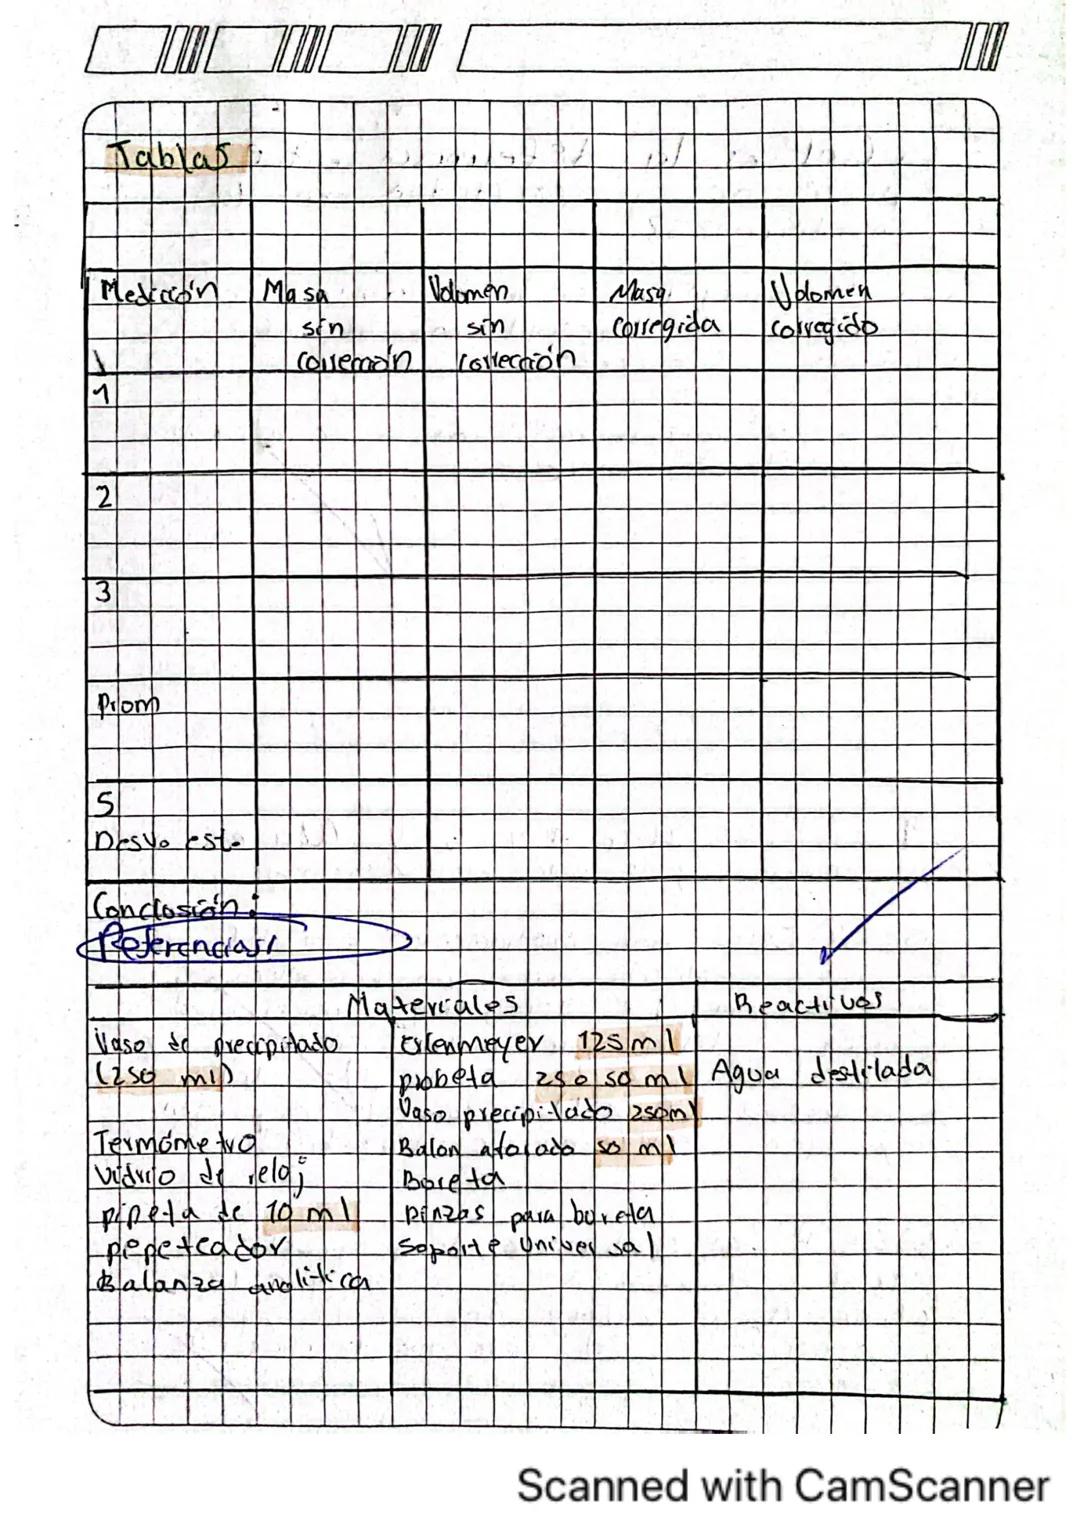 Tablas :
Medición Masa Volomen Masa Volomen
sin sin corregida corregido
correción corrección
1
2
3
Prom
S
Desv. est.
Conclosión:
Referencias/
Materiales Reactivos
Vaso de precipitado Erlenmeyer 125 ml
(250 ml) probeta 250 50 ml Agua destilada
Vaso precipitado 250ml
Termómetro Balon aforado 50 ml
Vidrio de reloj Bureta
pipeta de 10 ml pinzas para bureta
pipeteador soporte Universal
Balanza analitica
Scanned with CamScanner